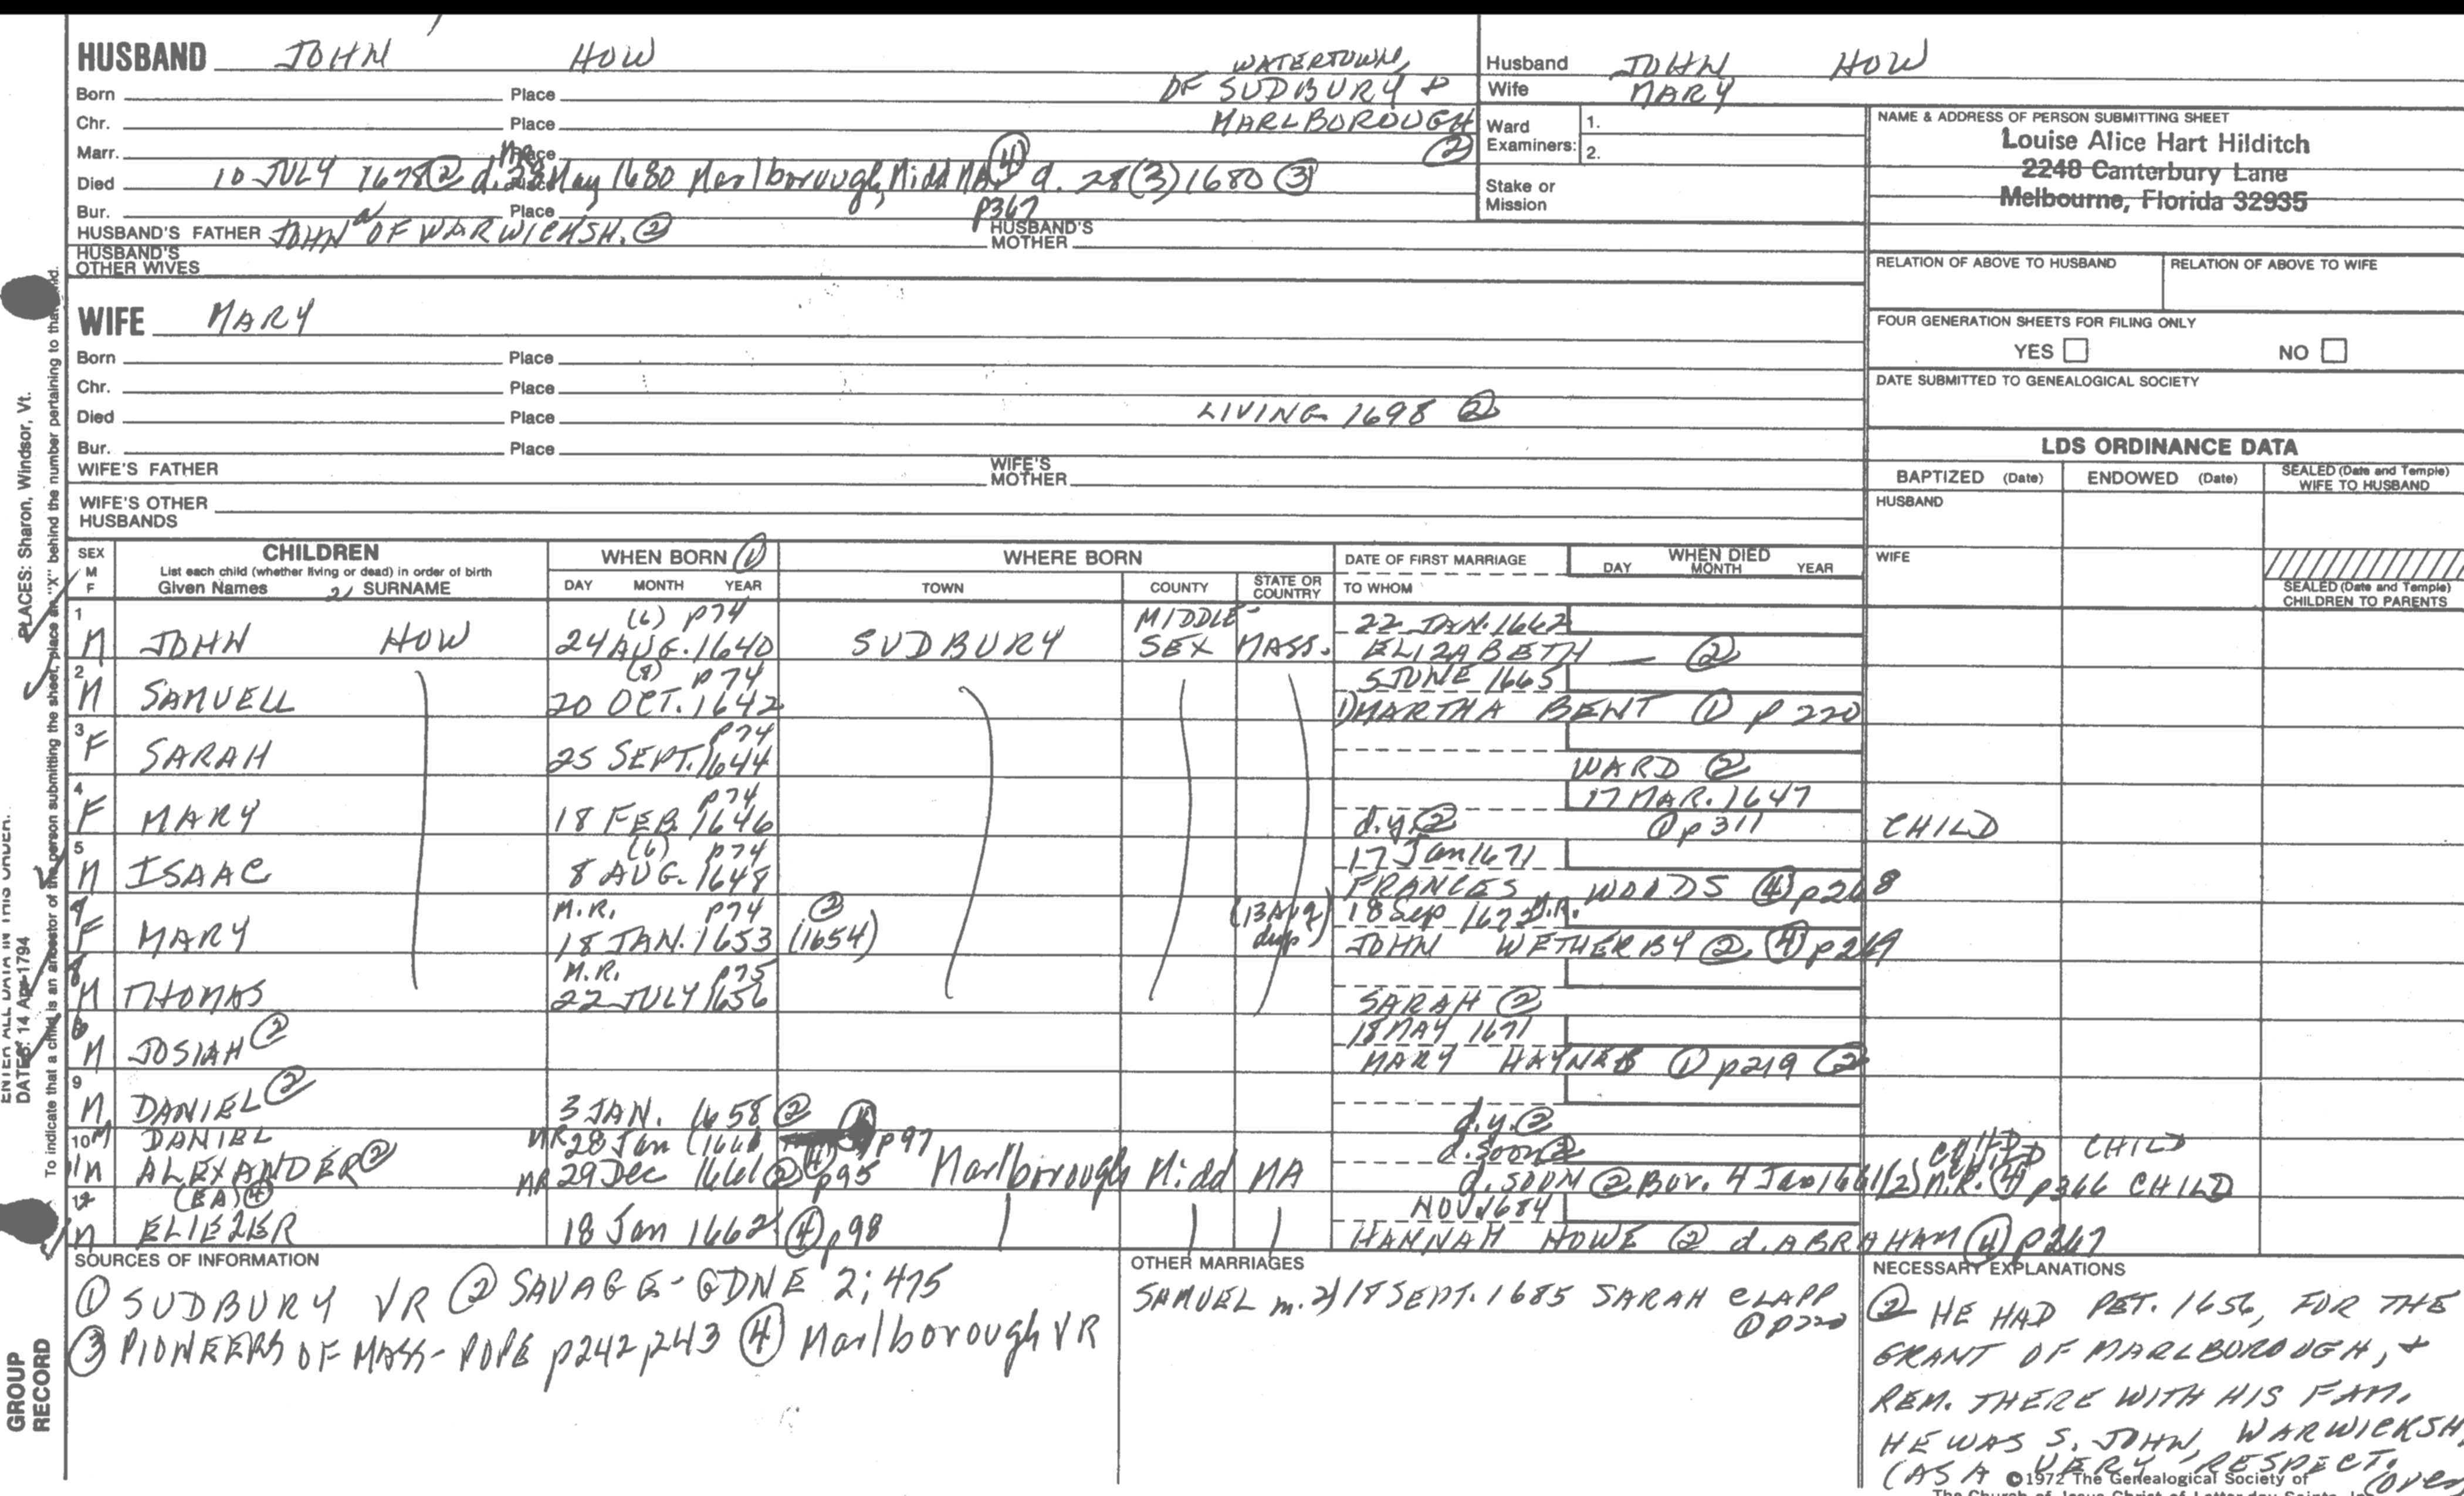 HUSBAND JOHN HOW
WATERTOWN,
OF SUDBURY &
MARLBOROUGH
②
Born Place
Chr. Place
Marr. Place
Died 10 JULY 1678 ② d. 28 May 1680 Marlborough, Midd MA ④ d. 28(3)1680 ③
p367
Bur. Place
HUSBAND'S FATHER JOHN OF WARWICKSH. ② HUSBAND'S MOTHER
HUSBAND'S
OTHER WIVES
WIFE MARY
Born Place
Chr. Place
Died Place LIVING 1698 ②
Bur. Place
WIFE'S FATHER WIFE'S MOTHER
WIFE'S OTHER
HUSBANDS
Husband JOHN HOW
Wife MARY
Ward 1.
Examiners: 2.
Stake or
Mission
NAME & ADDRESS OF PERSON SUBMITTING SHEET
Louise Alice Hart Hilditch
2248 Canterbury Lane
Melbourne, Florida 32935
RELATION OF ABOVE TO HUSBAND RELATION OF ABOVE TO WIFE
FOUR GENERATION SHEETS FOR FILING ONLY
YES NO
DATE SUBMITTED TO GENEALOGICAL SOCIETY
LDS ORDINANCE DATA
BAPTIZED (Date) ENDOWED (Date) SEALED (Date and Temple) WIFE TO HUSBAND
HUSBAND
WIFE
SEALED (Date and Temple)
CHILDREN TO PARENTS
SEX M F CHILDREN WHEN BORN ① WHERE BORN DATE OF FIRST MARRIAGE WHEN DIED
List each child (whether living or dead) in order of birth
Given Names SURNAME DAY MONTH YEAR TOWN COUNTY STATE OR COUNTRY TO WHOM DAY MONTH YEAR
1 (6) p74 MIDDLE- 22 JAN. 1662
M JOHN HOW 24 AUG. 1640 SUDBURY SEX MASS. ELIZABETH — ②
2 (8) p74 5 JUNE 1665
M SAMUELL 20 OCT. 1642 1) MARTHA BENT ① p 220
3 p74
F SARAH 25 SEPT. 1644 WARD ②
4 p74 17 MAR. 1647
F MARY 18 FEB. 1646 d.y. ② ① p311 CHILD
5 (6) p74 17 Jan 1671
M ISAAC 8 AUG. 1648 FRANCES WOODS ④ p268
M.R. p74 ② (13 Aug dup) 18 Sep 1672 M.R.
F MARY 18 JAN. 1653 (1654) JOHN WETHERBY ② ④ p269
M.R. p75
M THOMAS 22 JULY 1656 SARAH ②
18 MAY 1671
M JOSIAH ② MARY HAYNES ① p219 ②
9
M DANIEL ② 3 JAN. 1658 ② d.y. ②
10 M DANIEL MR 28 Jan p97 d. soon ② CHILD CHILD
11 M ALEXANDER ② MR 29 Dec 1661 ② ④ p95 Marlborough Midd MA d. soon ② Bur. 4 Jan 1661/(2) M.R. ④ p366 CHILD
12 (EA) ④ NOV. 1684
M ELIEZER 18 Jan 1662 ④ p98 HANNAH HOWE ② d. ABRAHAM ④ p267
SOURCES OF INFORMATION
① SUDBURY VR ② SAVAGE-GDNE 2; 475
③ PIONEERS OF MASS- POPE p242, p243 ④ Marlborough VR
OTHER MARRIAGES
SAMUEL m. 2) 18 SEPT. 1685 SARAH CLAPP
① p220
NECESSARY EXPLANATIONS
② HE HAD PET. 1656, FOR THE
GRANT OF MARLBOROUGH, &
REM. THERE WITH HIS FAM.
HE WAS S. JOHN, WARWICKSH,
(AS A VERY RESPECT. (over
©1972 The Genealogical Society of
The Church of Jesus Christ of Latter-day Saints, Inc
PLACES: Sharon, Windsor, Vt.
ENTER ALL DATA IN THIS ORDER:
DATES: 14 Apr 1794
To indicate that a child is an ancestor of the person submitting the sheet, place an "X" behind the number pertaining to that
GROUP
RECORD